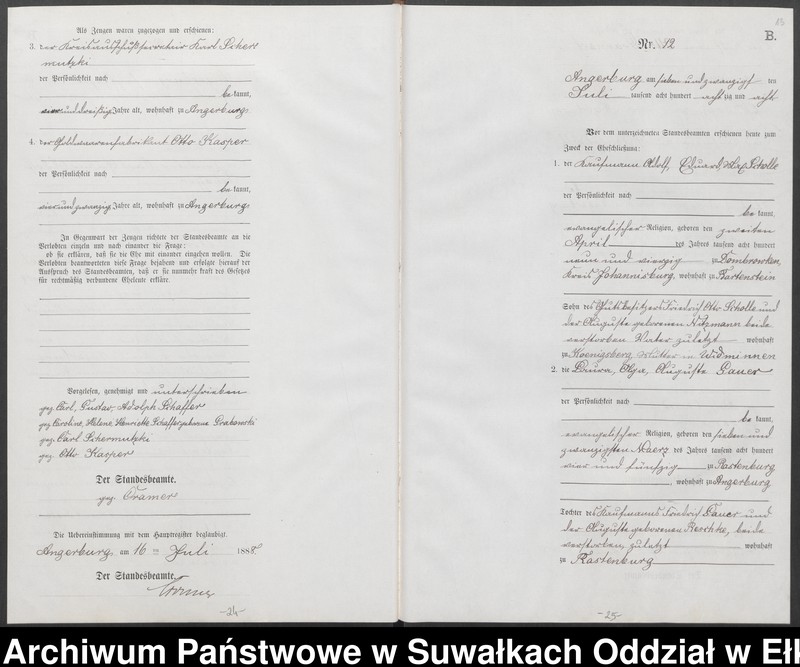 Als Zeugen waren zugezogen und erschienen:
3. der Kreisausschußsecretair Karl Scher
mutzki
der Persönlichkeit nach
be kannt,
vierunddreißig Jahre alt, wohnhaft zu Angerburg
4. der Goldwaarenfabrikant Otto Kasper
der Persönlichkeit nach
be kannt,
vierundzwanzig Jahre alt, wohnhaft zu Angerburg
In Gegenwart der Zeugen richtete der Standesbeamte an die
Verlobten einzeln und nach einander die Frage:
ob sie erklären, daß sie die Ehe mit einander eingehen wollen. Die
Verlobten beantworteten diese Frage bejahend und erfolgte hierauf der
Ausspruch des Standesbeamten, daß er sie nunmehr kraft des Gesetzes
für rechtmäßig verbundene Eheleute erkläre.
Vorgelesen, genehmigt und unterschrieben
gez. Carl, Gustav, Adolph Schaffer
gez. Caroline, Helene, Henriette Schaffer geborene Grabowski
gez. Carl Schermutzki
gez. Otto Kasper
Der Standesbeamte.
gez. Cramer
Die Uebereinstimmung mit dem Hauptregister beglaubigt
Angerburg, am 16 ten Juli 1888
Der Standesbeamte.
Cramer
-24-
13
B.
Nr. 12
Angerburg am sieben und zwanzigs ten
Juli tausend acht hundert acht zig und acht
Vor dem unterzeichneten Standesbeamten erschienen heute zum
Zweck der Eheschließung:
1. der Kaufmann Adolf, Eduard, Max Scholle
der Persönlichkeit nach
be kannt,
evangelischer Religion, geboren den zweiten
April des Jahres tausend acht hundert
neun und vierzig zu Dombrowken
Kreis Johannisburg, wohnhaft zu Bartenstein
Sohn des Gutsbesitzers Friedrich Otto Scholle und
der Auguste geborenen Hitzmann beide
verstorben Vater zuletzt wohnhaft
zu Koenigsberg, Mutter in Widminnen
2. die Laura, Olga, Auguste Dauer
der Persönlichkeit nach
be kannt,
evangelischer Religion, geboren den sieben und
zwanzigsten Maerz des Jahres tausend acht hundert
vier und fünfzig zu Rastenburg
, wohnhaft zu Angerburg
Tochter des Kaufmanns Friedrich Dauer und
der Auguste geborenen Reschke, beide
verstorben, zuletzt wohnhaft
zu Rastenburg
-25-
Archiwum Państwowe w Suwałkach Oddział w Eł